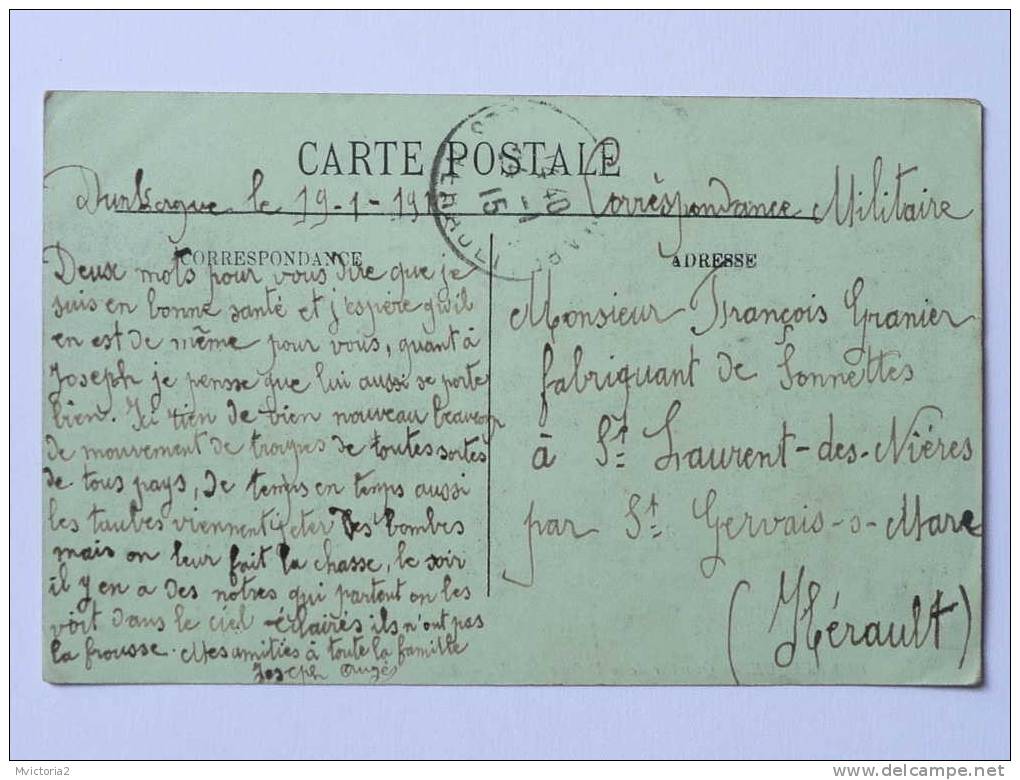 CARTE POSTALE
Dunkergue le 19-1-191
Corrèspondance Militaire
15 -1
CORRESPONDANCE
Deux mots pour vous dire que je
suis en bonne santé et j'espère qu'il
en est de même pour vous, quant à
Joseph je pensse que lui aussi se porte
bien. Ici rien de bien nouveau beaucoup
de mouvement de troupes de toutes sortes
de tous pays, de temps en temps aussi
les taubes viennent jeter des bombes
mais on leur fait la chasse, le soir
il y en a des notres qui partent on les
voit dans le ciel éclairés ils n'ont pas
la frousse. Mes amitiés à toute la famille
Joseph
ADRESSE
Monsieur François Granier
fabriquant de Sonnettes
à St Laurent-des-Nières
par St Gervais-s-Mare
(Hérault)
Mvictoria2
delcampe.net